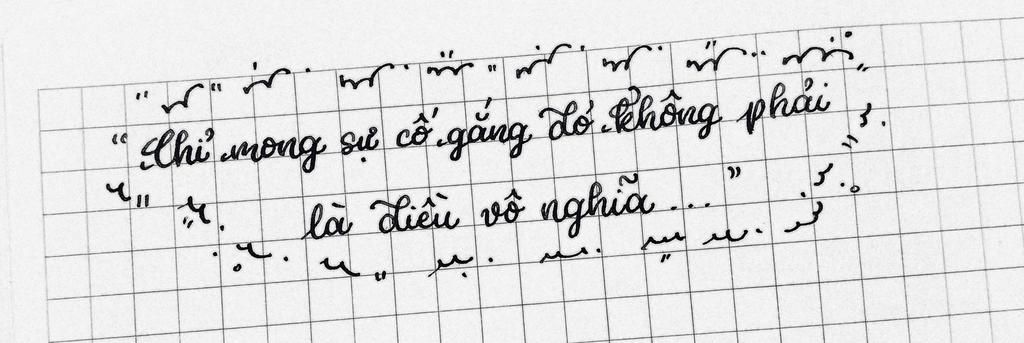 "Chỉ mong sự cố gắng đó không phải
là điều vô nghĩa..."